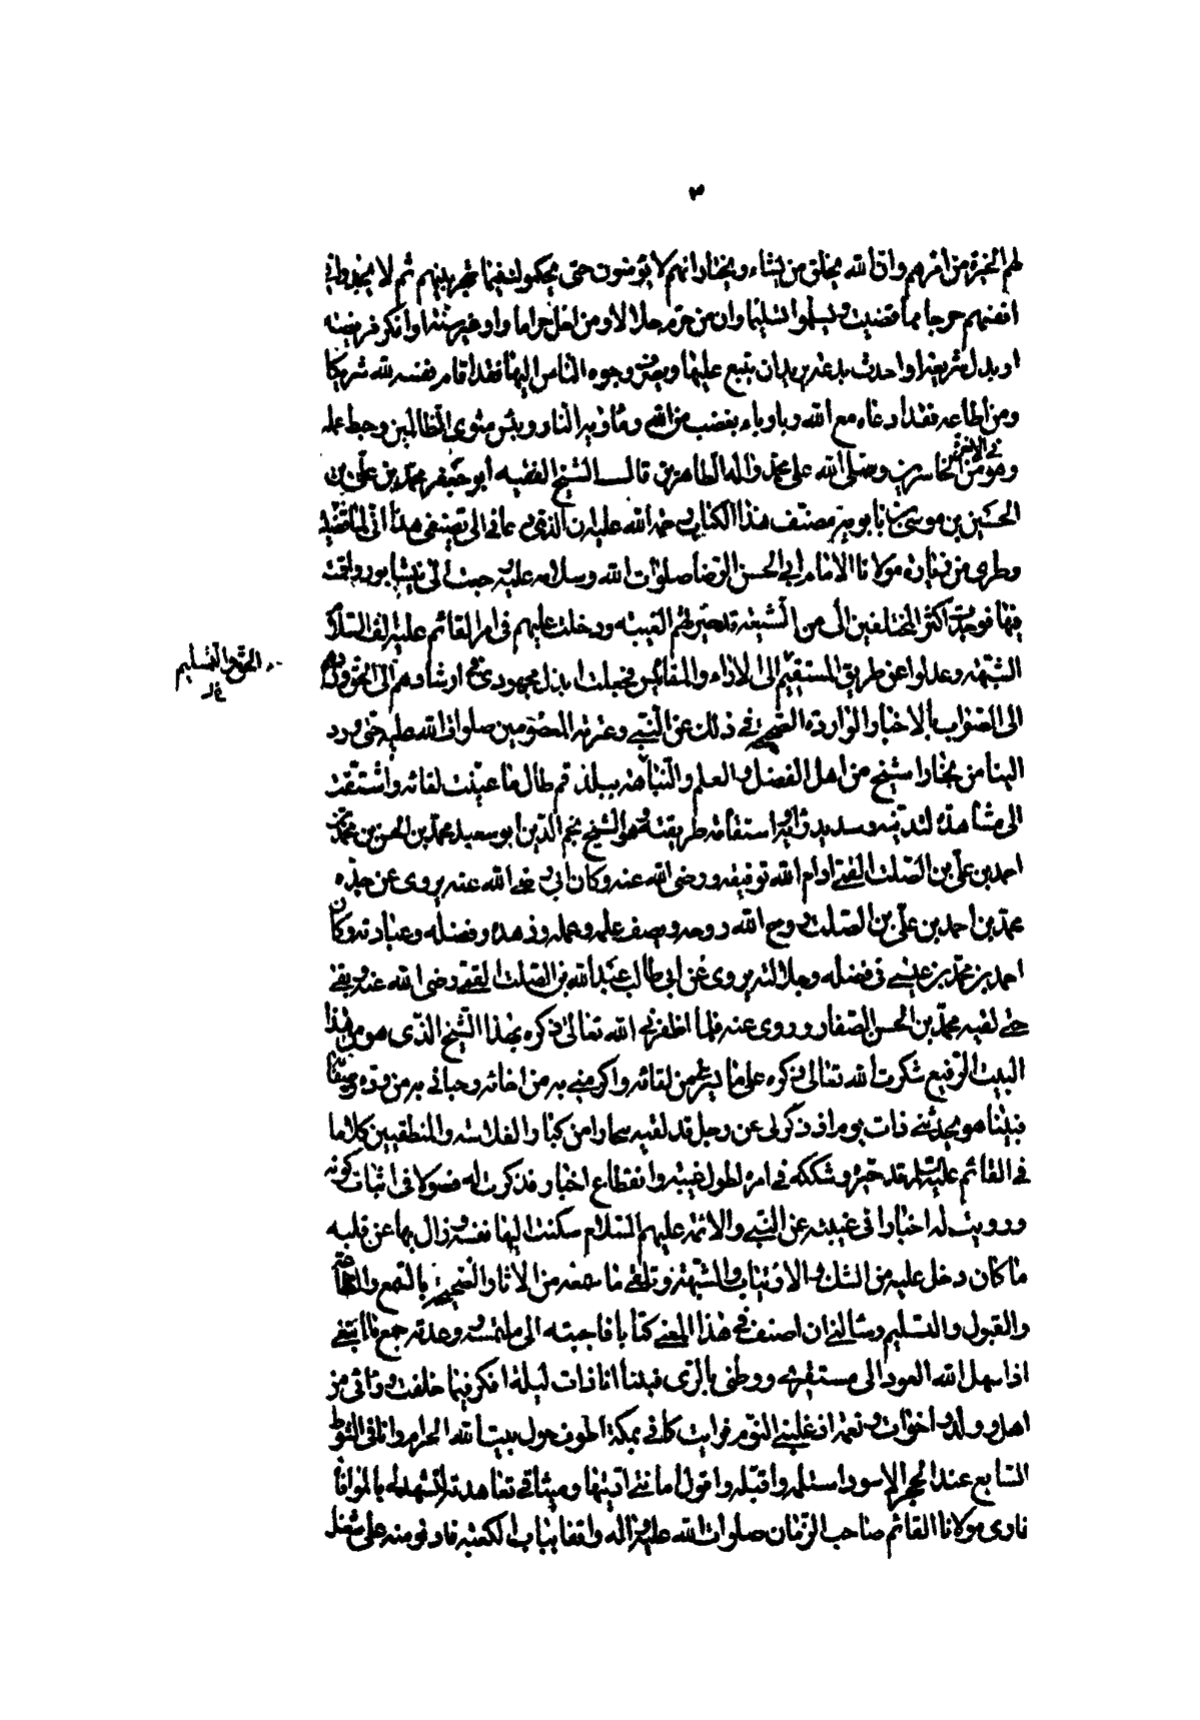 ٣
لهم الخيرة من امرهم وان الله يخلق من يشاء ويختار انهم لا يؤمنون حتى يحكموك فيما شجر بينهم ثم لا يجدوا في
انفسهم حرجا مما قضيت ويسلموا تسليما وان من حرم حلالا ومن احل حراما او غير سنة او انكر فريضة
او بدل شريعة او احدث بدعة يريد ان يتبع عليها ويصرف وجوه الناس اليها فقد اقام نفسه لله شريكا
ومن اطاعه فقد ادعاه مع الله وباوباء بغضب من الله وماويه النار وبئس مثوى الظالمين وحبط عمله
وهو فى الاخرة من الخاسرين وصلى الله على محمد واله الطاهرين قال الشيخ الفقيه ابو جعفر محمد بن على بن
الحسين بن موسى بن بابويه مصنف هذا الكتاب رحمة الله عليه ان الذى دعانى الى تصنيفى هذا انى لما قضيت
وطرى من زيارة مولانا الامام ابى الحسن الرضا صلوات الله وسلامه عليه رجعت الى نيشابور واقمت
فيها فوجدت اكثر المختلفين الى من الشيعة قد حيرتهم الغيبة ودخلت عليهم فى امر القائم عليه السلام
الشبهة وعدلوا عن طريق المستقيم الى الاراء والمقائيس فجعلت ابذل مجهودى فى ارشادهم الى الحق وردهم
الحق والتسليم
الى الصواب بالاخبار الواردة الصحيحة فى ذلك عن النبى وعترته المعصومين صلوات الله عليه حتى ورد
الينا من بخارا شيخ من اهل الفضل والعلم والنباهة ببلد قم طال ما تمنيت لقائه واشتقت
الى مشاهدته لتدينه وسديد رايه واستقامة طريقته وهو الشيخ نجم الدين ابو سعيد محمد بن الحسن بن محمد بن
احمد بن على بن الصلت القمى ادام الله توفيقه ورضى الله عنه وكان ابى رضى الله عنه يروى عن جده
محمد بن احمد بن على بن الصلت روح الله روحه ويصف علمه وعمله وزهده وفضله وعبادته وكان
احمد بن محمد بن عيسى فى فضله وجلالته يروى عن ابى طالب عبد الله بن الصلت القمى رضى الله عنه وبقى
حتى لقيه محمد بن الحسن الصفار وروى عنه فلما اظفرنى الله تعالى ذكره بهذا الشيخ الذى هو من هذا
البيت الرفيع شكرت الله تعالى ذكره على ما يسر لى من لقائه واكرمنى به من اخائه وحبانى به من وده وصفائه
فبينا هو يحدثنى ذات يوم اذ ذكر لى عن رجل قد لقيه ببخارا من كبار الفلاسفة والمنطقيين كلاما
فى القائم عليه السلم قد حيره وشككه فى امره لطول غيبته وانقطاع اخباره فذكرت له فصولا فى اثبات كونه
ورويت له اخبارا فى غيبته عن النبى والائمة عليهم السلام سكنت اليها نفسه وزال بها عن قلبه
ما كان دخل عليه من الشك والارتياب والشبهة وتلقى ما سمعه من الاثار الصحيحة بالسمع والطاعة
والقبول والتسليم وسالنى ان اصنف فى هذا المعنى كتابا فاجبته الى ملتمسه ووعدته جمع ما ابتغى
اذا سهل الله العود الى مستقرى ووطنى بالرى فبينا انا ذات ليلة افكر فيما خلفت ورائى من
اهل وولد واخوان ونعمة اذ غلبنى النوم فرايت كانى بمكة اطوف حول بيت الله الحرام وانا فى الشوط
السابع عند الحجر الاسود استلمه واقبله واقول امانتى اديتها وميثاقى تعاهدته لتشهد لى بالموافاة
فارى مولانا القائم صاحب الزمان صلوات الله عليه واله واقفا بباب الكعبة فادنو منه على شغل